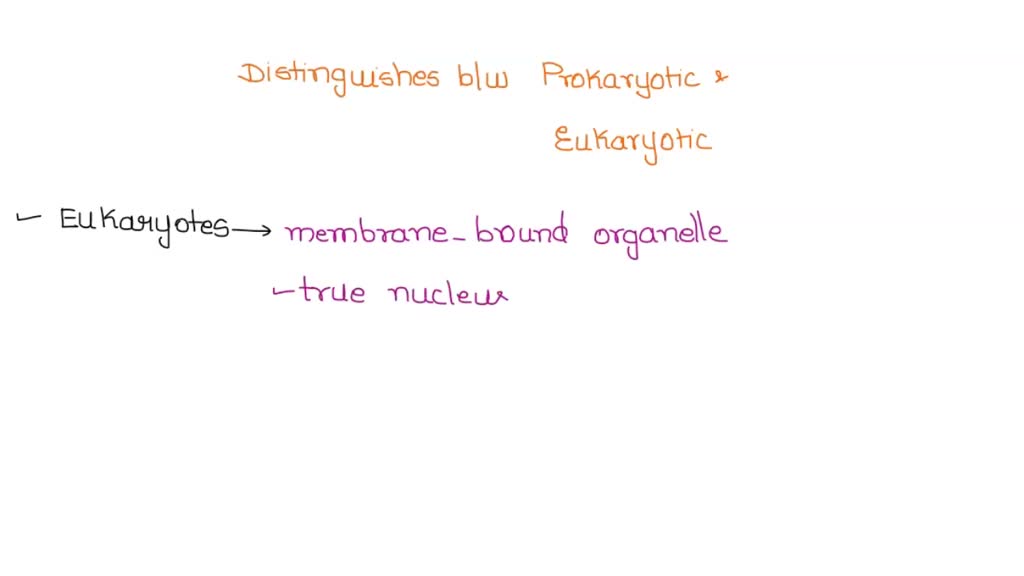 Distinguishes b/w Prokaryotic &
Eukaryotic
✓ Eukaryotes → membrane-bound organelle
✓ true nucleus